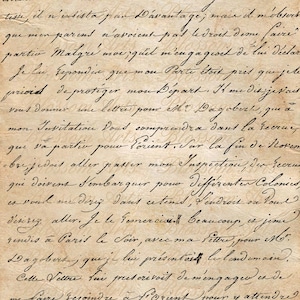 il n'insista pas Davantage; mais il m'observa
que mon parent n'avoient pas le droit de me faire
partir Malgré moi, qu'il m'engageois de lui déclarer
Je lui répondis que mon Père étoit près que je le
priois de protéger mon Départ. Il me dit je vais
vous donner une lettre pour Mr. Dagobert, qui à
mon Invitation Vous comprendra dans la Recrue
qui va partir pour l'orient. Sur la fin de Novem
bre je dus aller passer mon Inspection, des Recrues
qui doivent s'embarquer pour différentes Colonies
ce vous me direz dans ce tems, l'endroit ou vous
désirez aller. Je le remerciai Beaucoup et je me
rendis à Paris le Soir, avec ma lettre, pour Mr.
Dagobert, que je lui présentai le lendemain.
Cette Lettre lui prescrivoit de m'engager et de
me faire rejoindre à l'orient